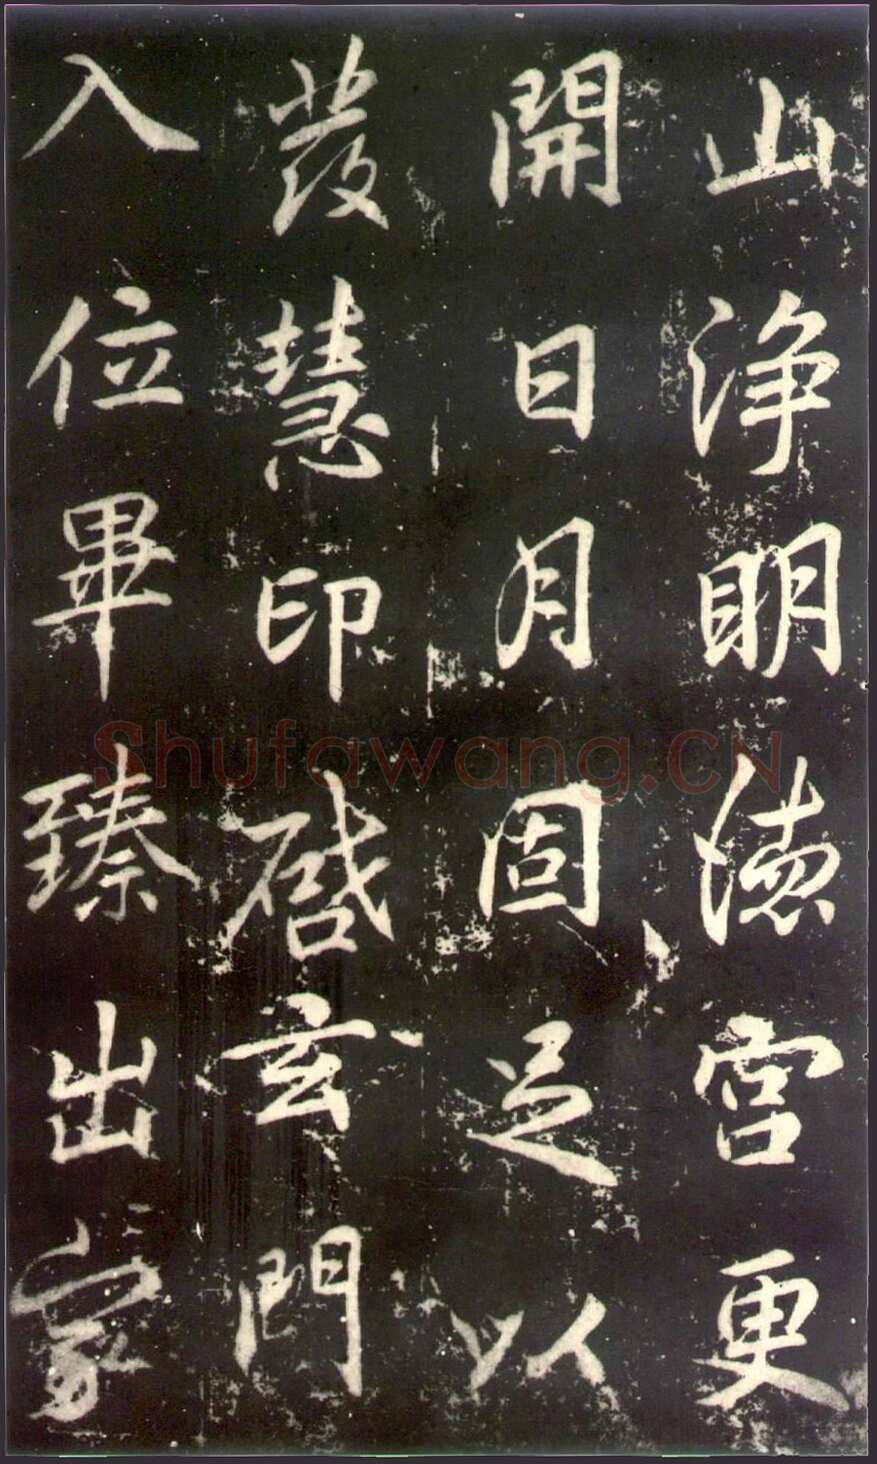 山浄明徳宮更
開日月固足以
發慧印啓玄門
入位畢臻出家
Shufawang.CN